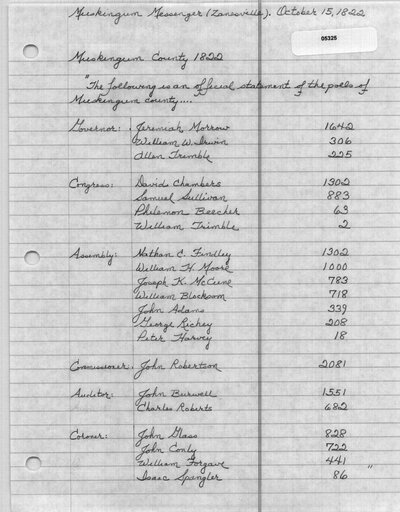 Muskingum Messenger (Zanesville). October 15, 1822
05325
Muskingum County 1822
"The following is an official statement of the polls of
Muskingum county....
Governor: Jeremiah Morrow 1642
William W. Irwin 306
Allen Trimble 225
Congress: David Chambers 1302
Samuel Sullivan 883
Philemon Beecher 63
William Trimble 2
Assembly: Nathan C. Findley 1302
William H. Moore 1000
Joseph K. McCune 783
William Blocksom 718
John Adams 339
George Richey 208
Peter Harvey 18
Commissioner: John Robertson 2081
Auditor: John Burwell 1551
Charles Roberts 682
Coroner: John Glass 828
John Conly 722
William Forgave 441
Isaac Spangler 86 "